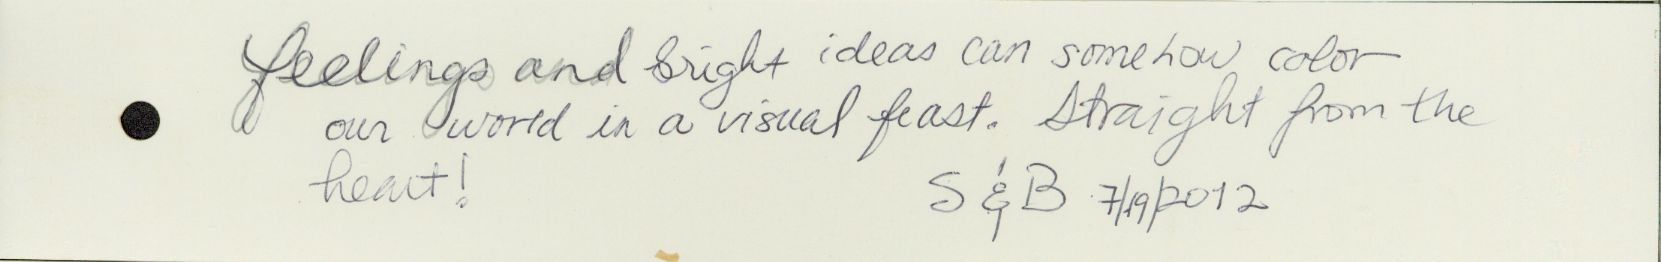 feelings and bright ideas can somehow color
our world in a visual feast. Straight from the
heart!
S & B 7/19/2012